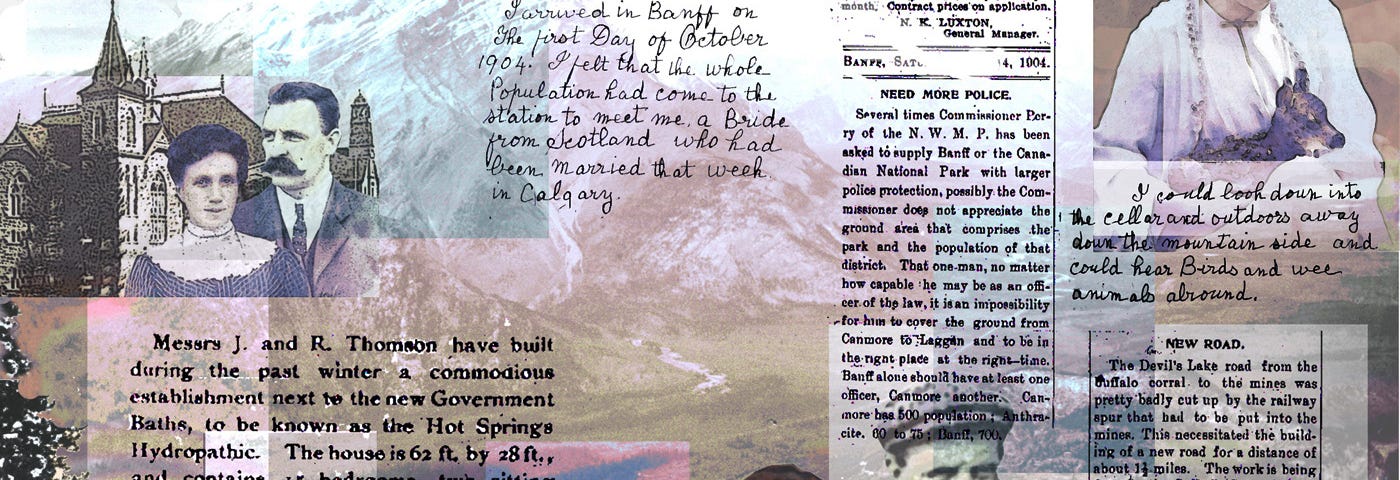 I arrived in Banff on
The first Day of October
1904. I felt that the whole
Population had come to the
station to meet me, a Bride
from Scotland who had
been Married that week
in Calgary.
Messrs J. and R. Thomson have built
during the past winter a commodious
establishment next to the new Government
Baths, to be known as the Hot Springs
Hydropathic. The house is 62 ft. by 28 ft.,
and contains 15 bedrooms, two sitting
month. Contract prices on application.
N. K. LUXTON,
General Manager.
BANFF, SAT 4, 1904.
NEED MORE POLICE.
Several times Commissioner Per-
ry of the N. W. M. P. has been
asked to supply Banff or the Cana-
dian National Park with larger
police protection, possibly the Com-
missioner does not appreciate the
ground area that comprises the
park and the population of that
district. That one man, no matter
how capable he may be as an offi-
cer of the law, it is an impossibility
for him to cover the ground from
Canmore to Laggan and to be in
the right place at the right time.
Banff alone should have at least one
officer, Canmore another. Can-
more has 500 population; Anthra-
cite, 60 to 75; Banff, 700.
I could look down into
the cellar and outdoors away
down the mountain side and
could hear Birds and wee
animals abround.
NEW ROAD.
The Devil's Lake road from the
Buffalo corral to the mines was
pretty badly cut up by the railway
spur that had to be put into the
mines. This necessitated the build-
ing of a new road for a distance of
about 1½ miles. The work is being